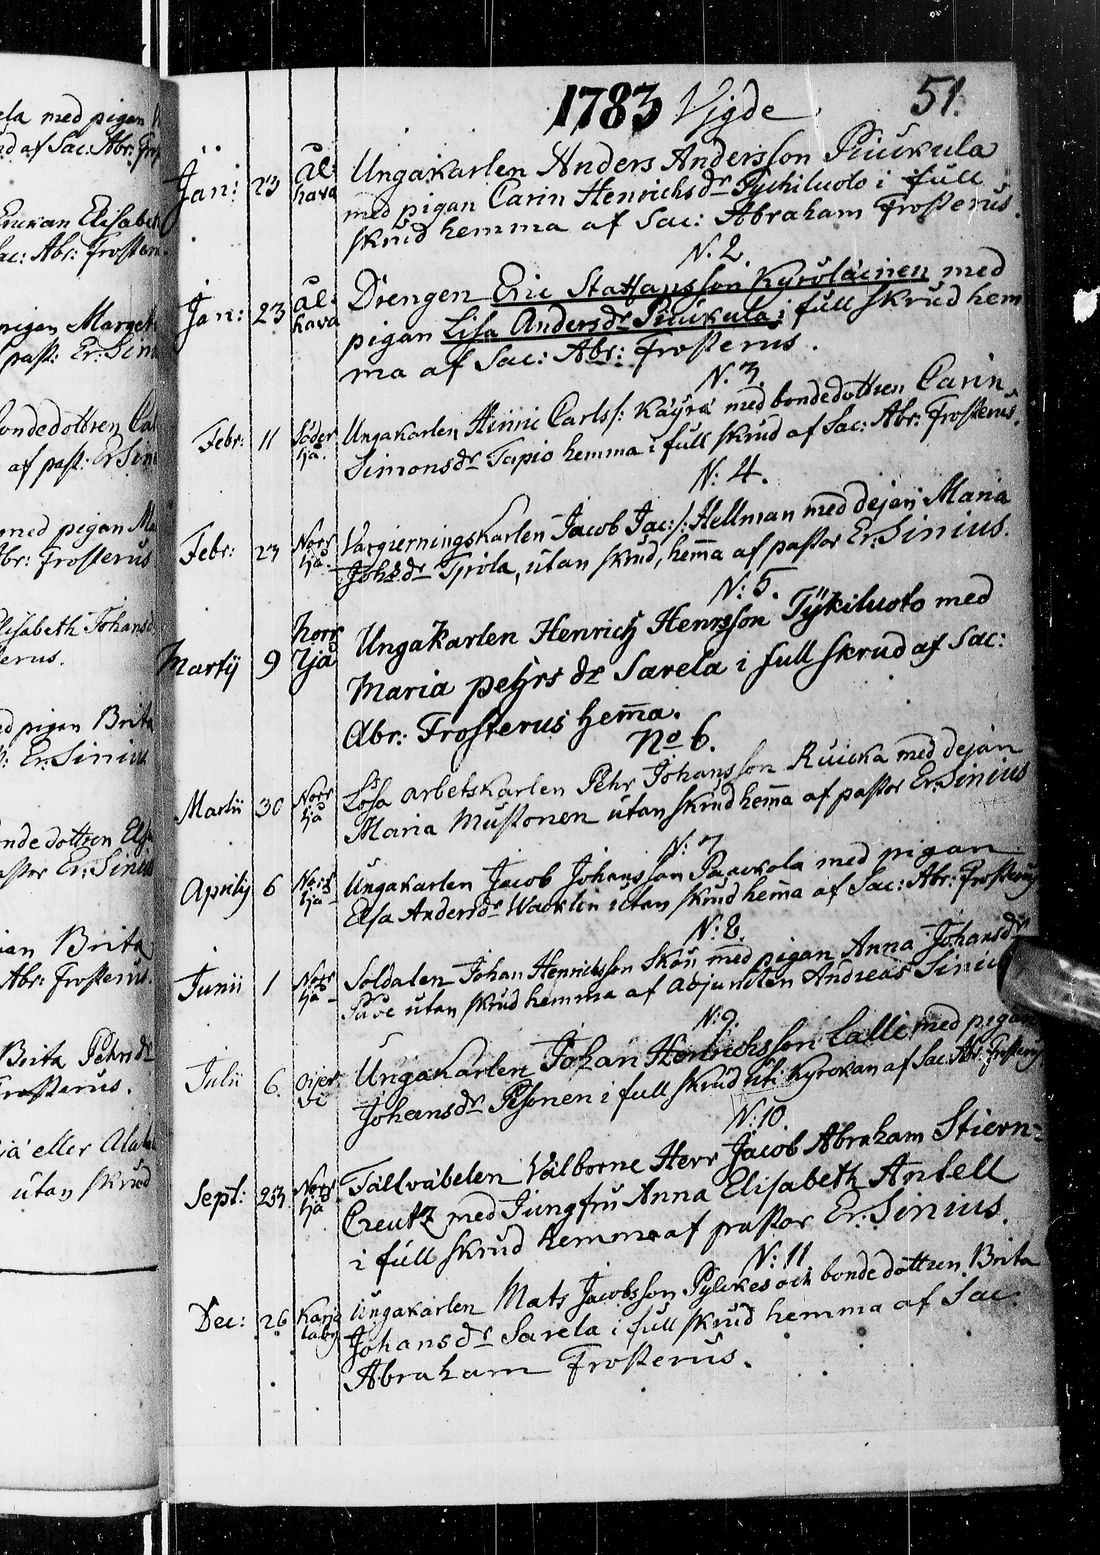 ela med pigan
d af Sac: Abr:
Enckan Elisabet
Sac: Abr: Frosten
pigan Marget
past: Er: Sini
bondedottren Ca
af past: Er Sini
med pigan Ma
Abr: Frosterus
Elisabeth Johans
erus.
ed pigan Brita
Er: Sinius
onde dottren Els
astor Er: Sinius
Brita
Abr: Frosterus.
Brita Pehrs dr
Frosterus.
jä eller Ala
utan skrud
1783 Vigde 51.
Jan: 23 Al: kava Ungakarlen Anders Andersson Piukula
med pigan Carin Henrichs dr Tyckiluoto i full
skrud hemma af Sac: Abraham Frosterus.
N. 2.
Jan: 23 al: kava Drengen Eric Staffansson Kyroläinen med
pigan Lisa Anders dr Piukula i full skrud hem
ma af Sac: Abr: Frosterus.
N. 3.
Febr: 11 Söder ljå. Ungakarlen Hinric Carls/: Käyrä med bondedottren Carin
Simons dr Tapio hemma i full skrud af Sac: Abr: Frosterus.
N: 4.
Febr: 23 Norr ljå Vargierningskarlen Jacob Jac:/: Hellman med dejan Maria
Johs dr Tyrola, utan skrud, hema af pastor Er: Sinius.
N: 5.
Martij 9 Norr ljå Ungakarlen Henrich Henrsson Tykiluoto med
Maria pehrs dr Sarela i full skrud af Sac:
Abr: Frosterus hema.
No 6.
Martii 30 Norr ljå Lösa arbetskarlen Pehr Johansson Ruicka med dejan
Maria Mustonen utan skrud hema af pastor Er: Sinius
N: 7
Aprilij 6 Norr ljå Ungakarlen Jacob Johansson Paackola med pigan
Elsa Anders dr Wacklin utan skrud hema af Sac: Abr: Frosterus
N: 8.
Junii 1 Norr ljå Soldaten Johan Henricsson Skön med pigan Anna Johans dr
Pave utan skrud hemma af adjuncten Andreas Sinius
N: 9.
Julii 6. Ungakarlen Johan Henrichsson Calli med pigan
Johans dr Pesonen i full skrud uti kyrckan af Sac: Abr: Frosterus
N: 10
Sept: 23 Norr ljå Fältväbelen Välborne Herr Jacob Abraham Stiern-
Creutz med Jungfru Anna Elisabeth Antell
i full skrud hemma af pastor Er: Sinius.
N: 11
Dec: 26 Karja laby Ungakarlen Mats Jacobsson Pylckes och bonde dottren Brita
Johans dr Sarela i full skrud hemma af Sac:
Abraham Frosterus.